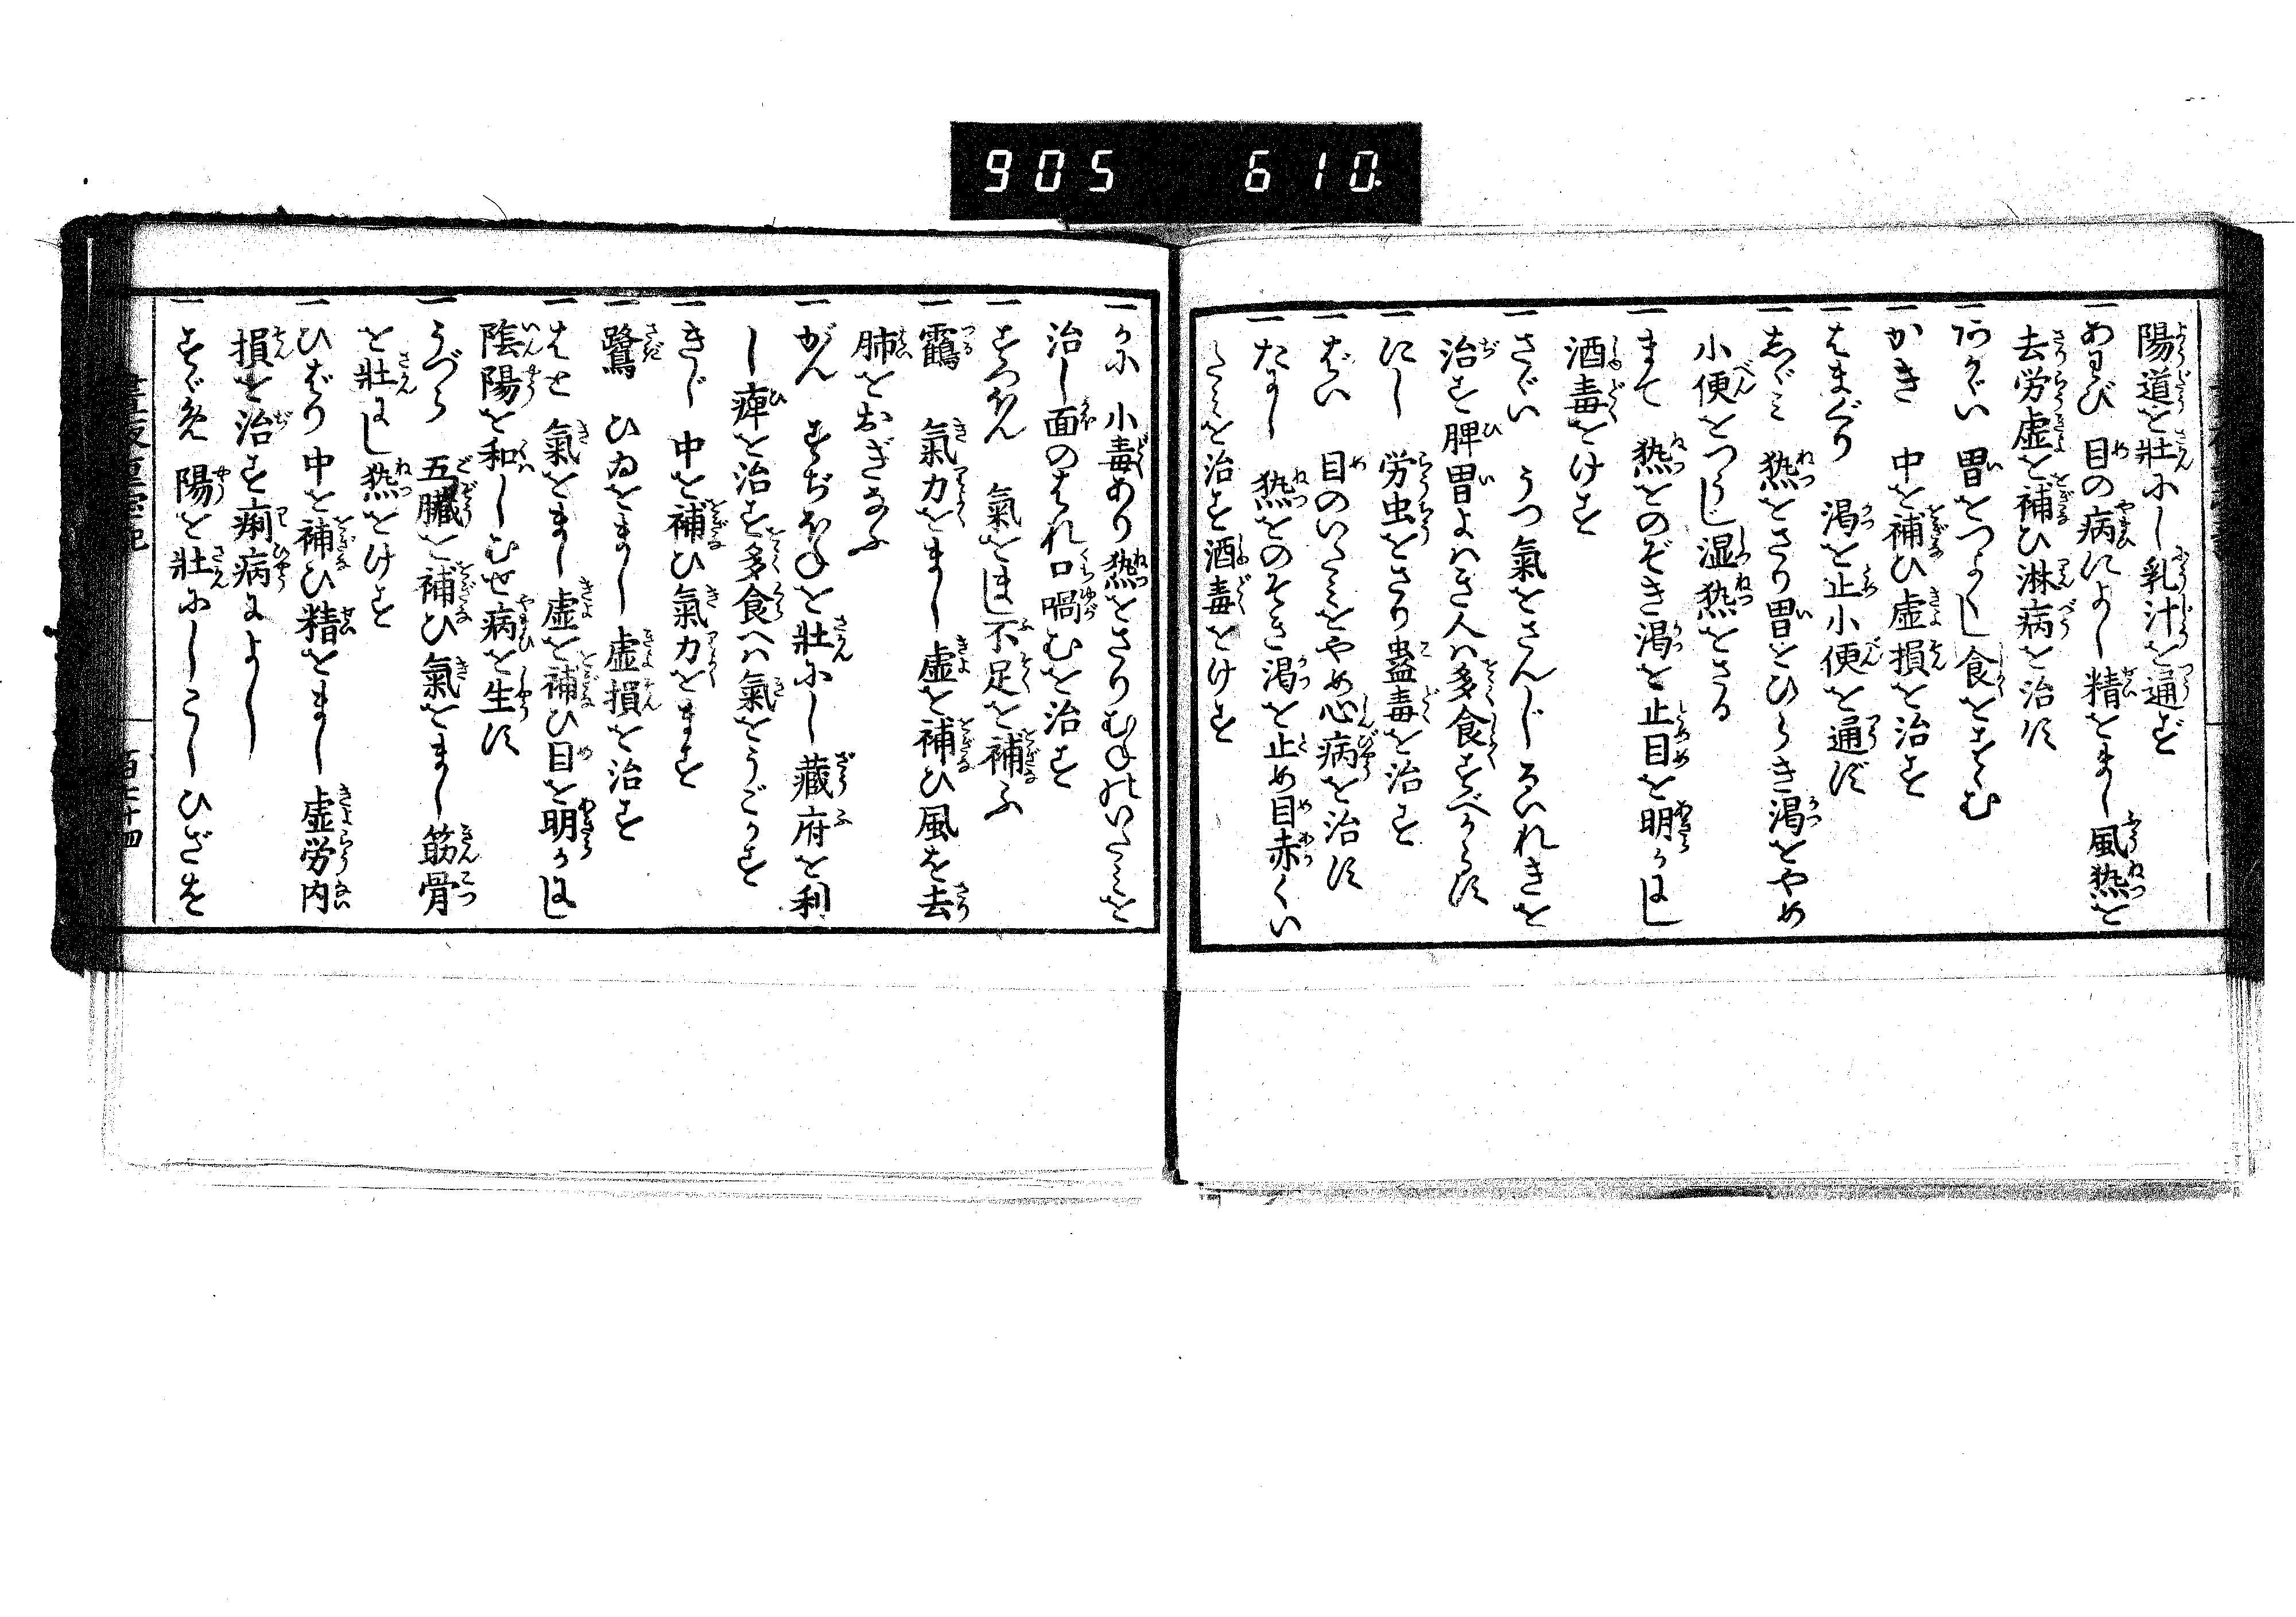 905 610.
陽道を壮にし乳汁を通ず
一あわび 目の病によし精をまし風熱を
去労虚を補ひ淋病を治す
一あかがい 胃をつよくし食をすゝむ
一かき 中を補ひ虚損を治す
一はまぐり 渇を止小便を通ず
一しゞミ 熱をさり胃をひらき渇をやめ
小便をつうじ湿熱をさる
一まて 熱をのぞき渇を止目を明かにし
酒毒をけす
一さゞい うつ氣をさんじるいれきを
治す脾胃よハき人ハ多食すべからず
一にし 労虫をさり蠱毒を治す
一ばい 目のいたミをやめ心病を治す
一たにし 熱をのそき渇を止め目赤くい
たミを治す酒毒をけす
一かに 小毒あり熱をさりむねのいたミを
治し面のはれ口喎むを治す
一すつぽん 氣をほし不足を補ふ
一靏 氣力をまし虚を補ひ風を去
肺をおぎなふ
一がん すぢほねを壮にし藏府を利
し痺を治す多食へハ氣をうごかす
一きじ 中を補ひ氣力をます
一鷺 ひゐをまし虚損を治す
一はと 氣をまし虚を補ひ目を明かにし
陰陽を和しむせ病を生ず
一うづら 五臓を補ひ氣をまし筋骨
を壮にし熱をけす
一ひばり 中を補ひ精をまし虚労内
損を治す痢病によし
一すゞめ 陽を壮にしこしひざを
百七十四